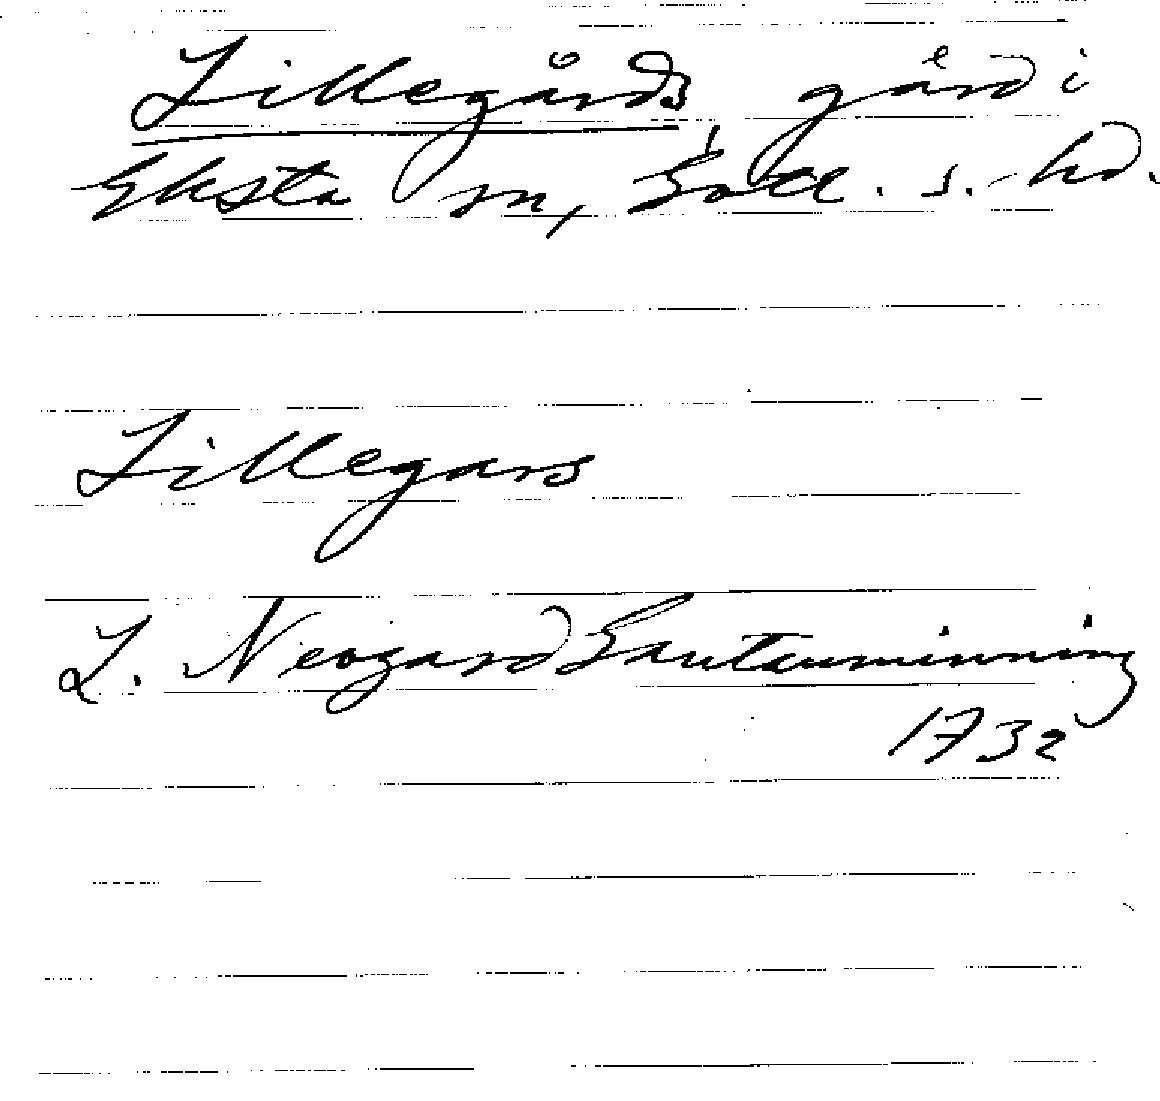 Lillegårds, gård i
Eksta sn, Gotl. s. hd.
Lillegars
L. Neogard Gautauminning
1732